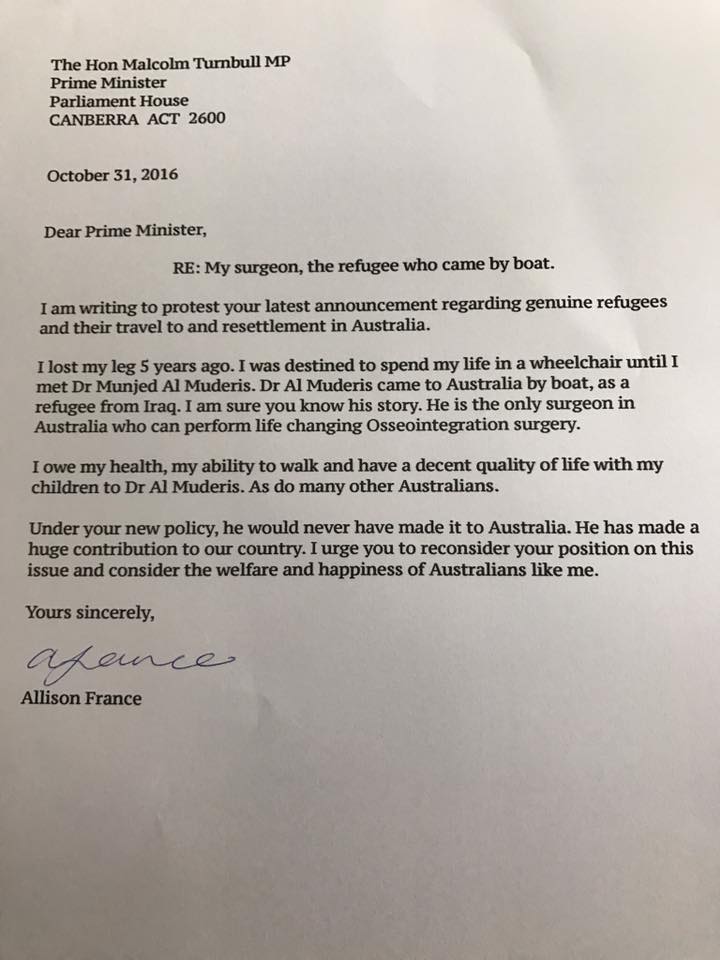 The Hon Malcolm Turnbull MP
Prime Minister
Parliament House
CANBERRA ACT 2600
October 31, 2016
Dear Prime Minister,
RE: My surgeon, the refugee who came by boat.
I am writing to protest your latest announcement regarding genuine refugees
and their travel to and resettlement in Australia.
I lost my leg 5 years ago. I was destined to spend my life in a wheelchair until I
met Dr Munjed Al Muderis. Dr Al Muderis came to Australia by boat, as a
refugee from Iraq. I am sure you know his story. He is the only surgeon in
Australia who can perform life changing Osseointegration surgery.
I owe my health, my ability to walk and have a decent quality of life with my
children to Dr Al Muderis. As do many other Australians.
Under your new policy, he would never have made it to Australia. He has made a
huge contribution to our country. I urge you to reconsider your position on this
issue and consider the welfare and happiness of Australians like me.
Yours sincerely,
afrance
Allison France